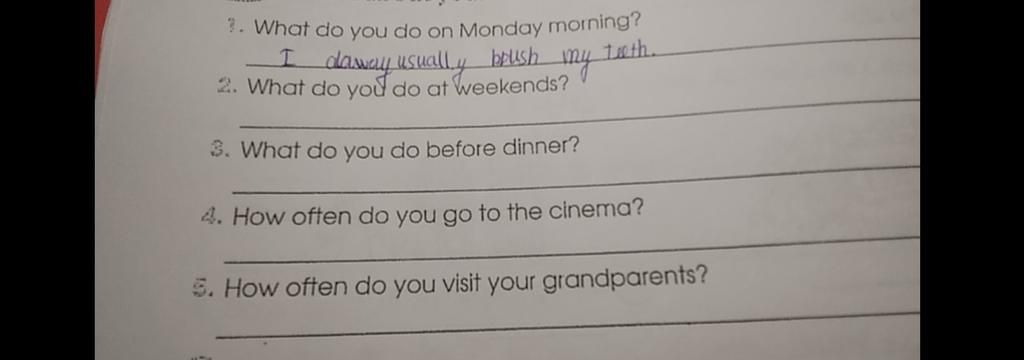 1. What do you do on Monday morning?
I usually brush my teeth.
2. What do you do at weekends?
3. What do you do before dinner?
4. How often do you go to the cinema?
5. How often do you visit your grandparents?